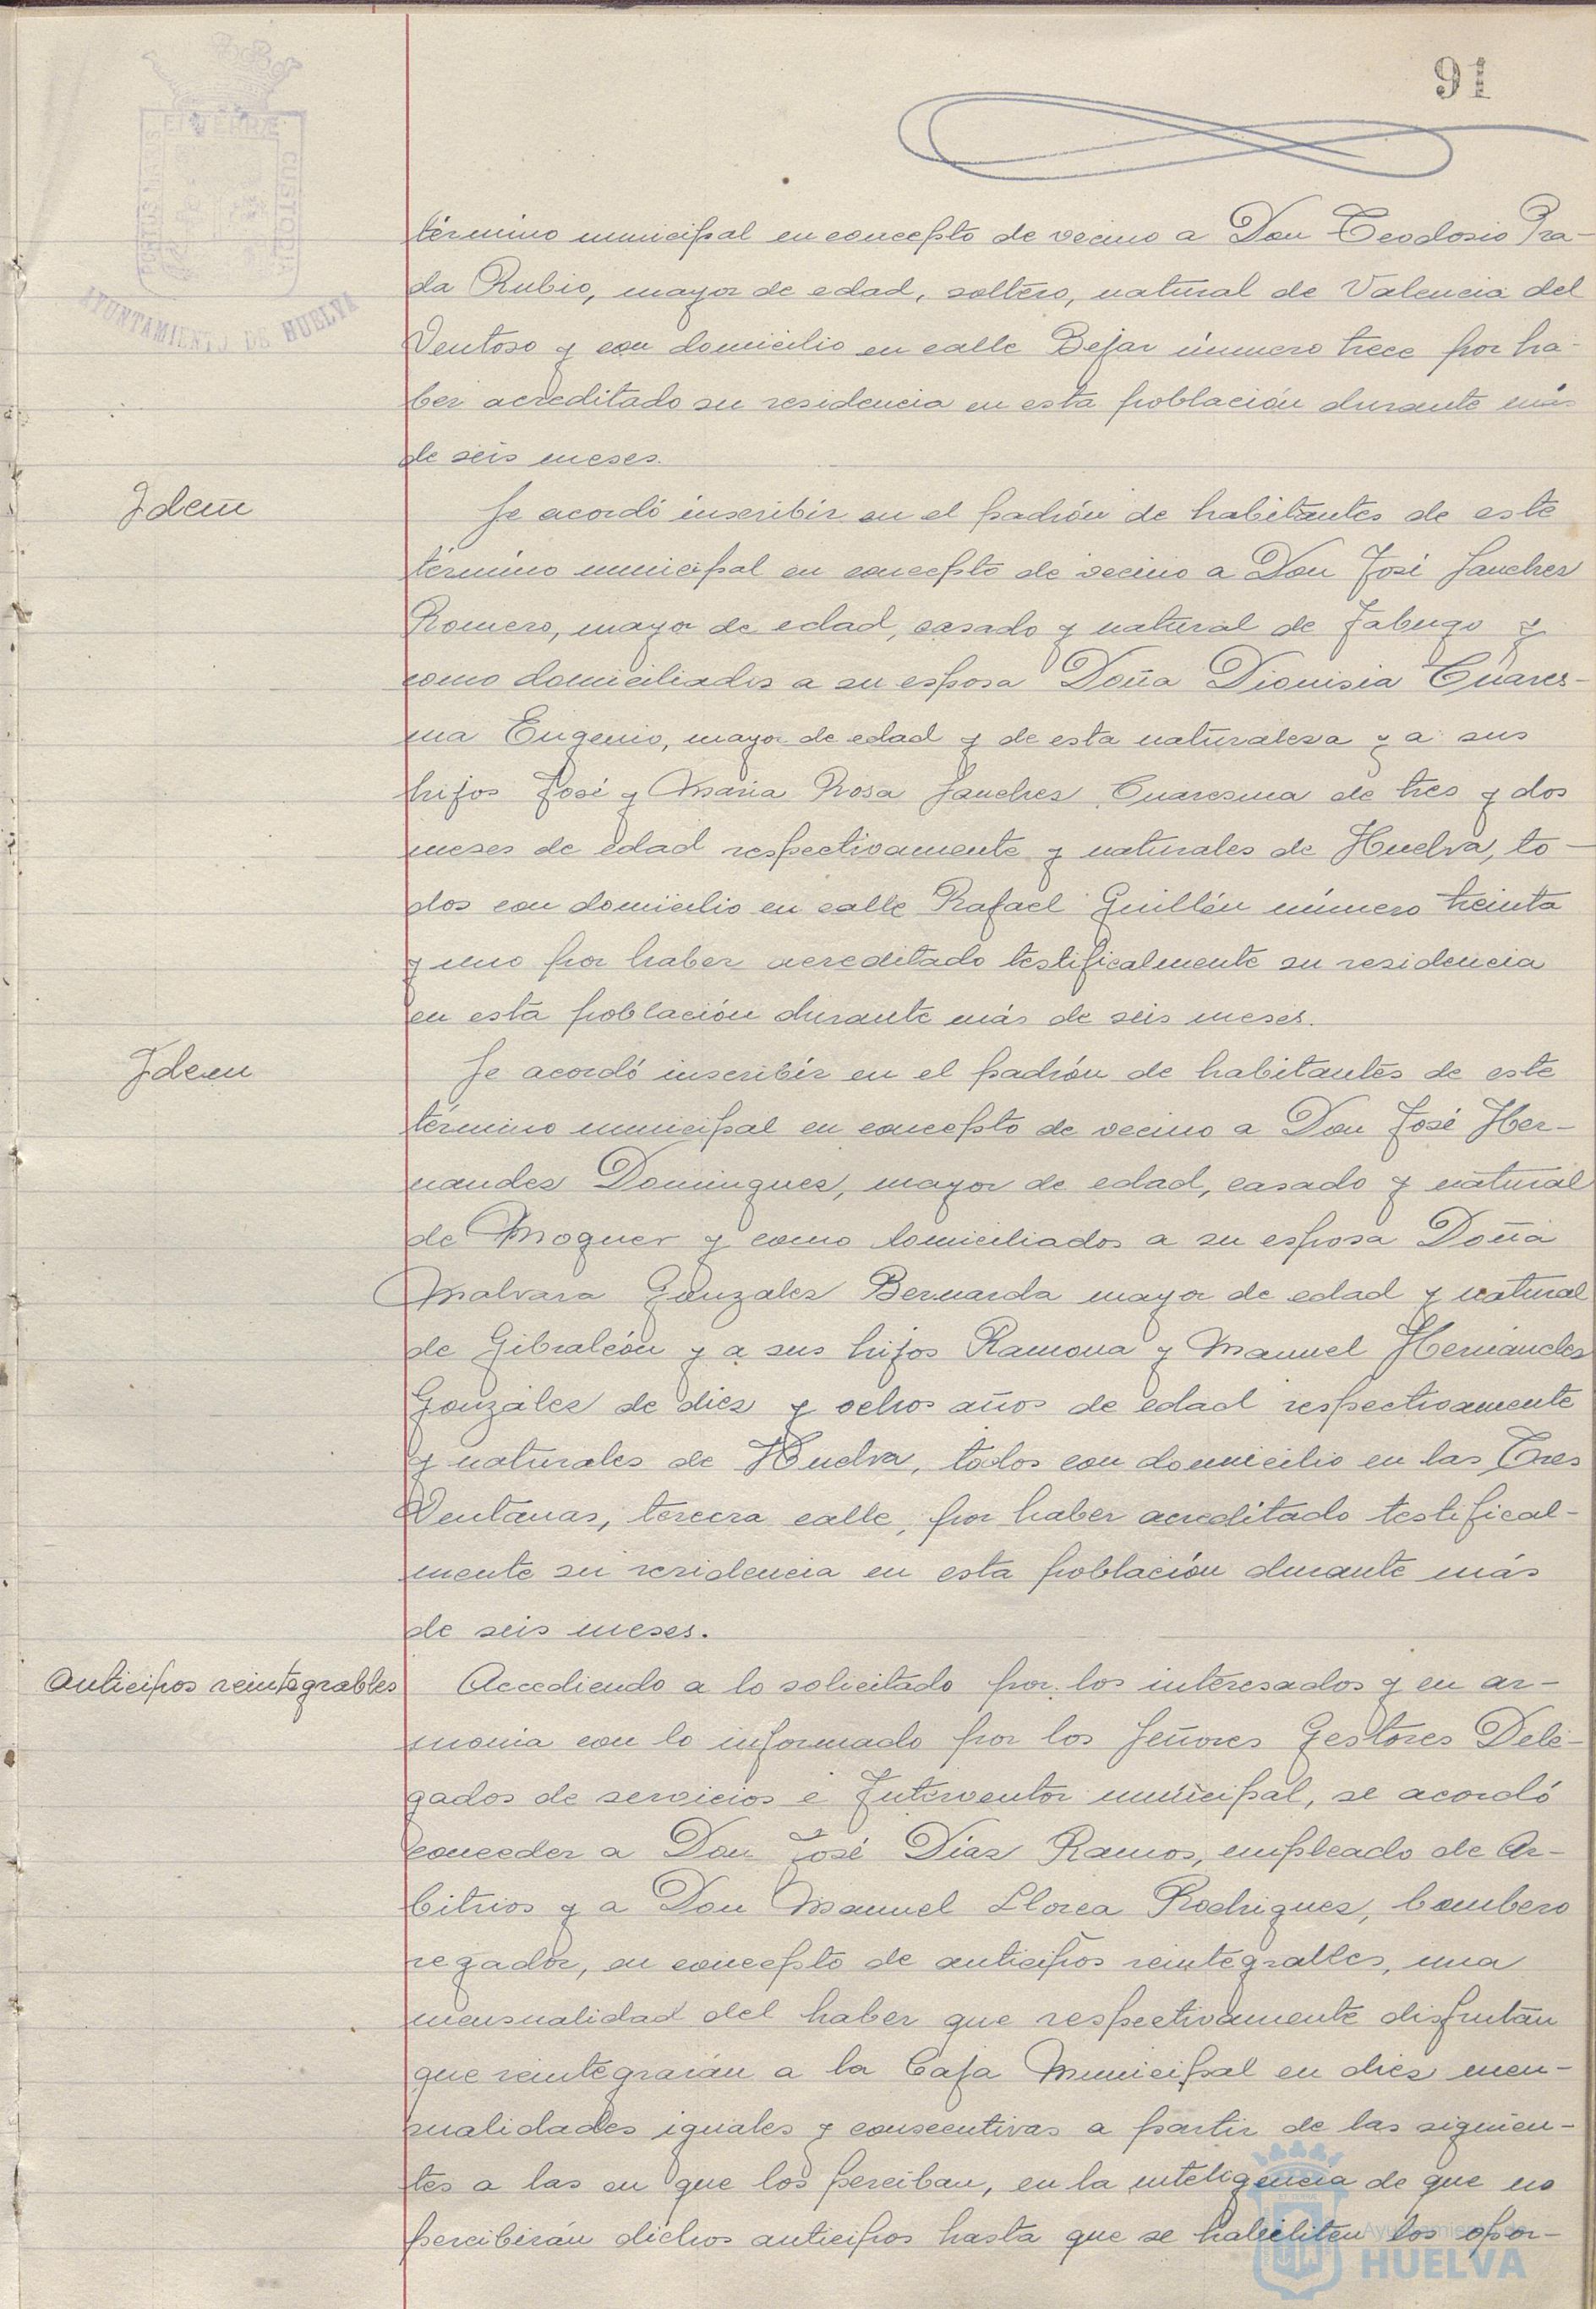 91
PORTUS MARIS
ET TERRÆ
CUSTODIA
AYUNTAMIENTO DE HUELVA
término municipal en concepto de vecino a Don Teodosio Pra-
da Rubio, mayor de edad, soltero, natural de Valencia del
Ventoso y con domicilio en calle Bejar número trece por ha-
ber acreditado su residencia en esta población durante más
de seis meses.
Idem
Se acordó inscribir en el padrón de habitantes de este
término municipal en concepto de vecino a Don José Sanchez
Romero, mayor de edad, casado y natural de Jabugo y
como domiciliados a su esposa Doña Dionisia Cuares-
ma Eugenio, mayor de edad y de esta naturaleza y a sus
hijos José y Maria Rosa Sanchez Cuaresma de tres y dos
meses de edad respectivamente y naturales de Huelva, to-
dos con domicilio en calle Rafael Guillén número treinta
y uno por haber acreditado testificalmente su residencia
en esta población durante más de seis meses.
Idem
Se acordó inscribir en el padrón de habitantes de este
término municipal en concepto de vecino a Don José Her-
nandez Dominguez, mayor de edad, casado y natural
de Moguer y como domiciliados a su esposa Doña
Malvara Gonzalez Bernarda mayor de edad y natural
de Gibraleón y a sus hijos Ramona y Manuel Hernandez
Gonzalez de diez y ochos años de edad respectivamente
y naturales de Huelva, todos con domicilio en las Tres
Ventanas, tercera calle, por haber acreditado testifical-
mente su residencia en esta población durante más
de seis meses.
Anticipos reintegrables
Accediendo a lo solicitado por los interesados y en ar-
monia con lo informado por los Señores Gestores Dele-
gados de servicios e Interventor municipal, se acordó
conceder a Don José Diaz Ramos, empleado de Ar-
bitrios y a Don Manuel Llorca Rodriguez, bombero
regador, en concepto de anticipos reintegrables, una
mensualidad del haber que respectivamente disfrutan
que reintegrarán a la Caja Municipal en diez men-
sualidades iguales y consecutivas a partir de las siguien-
tes a las en que los perciban, en la inteligencia de que no
percibirán dichos anticipos hasta que se habiliten los opor-
Ayuntamiento de
HUELVA